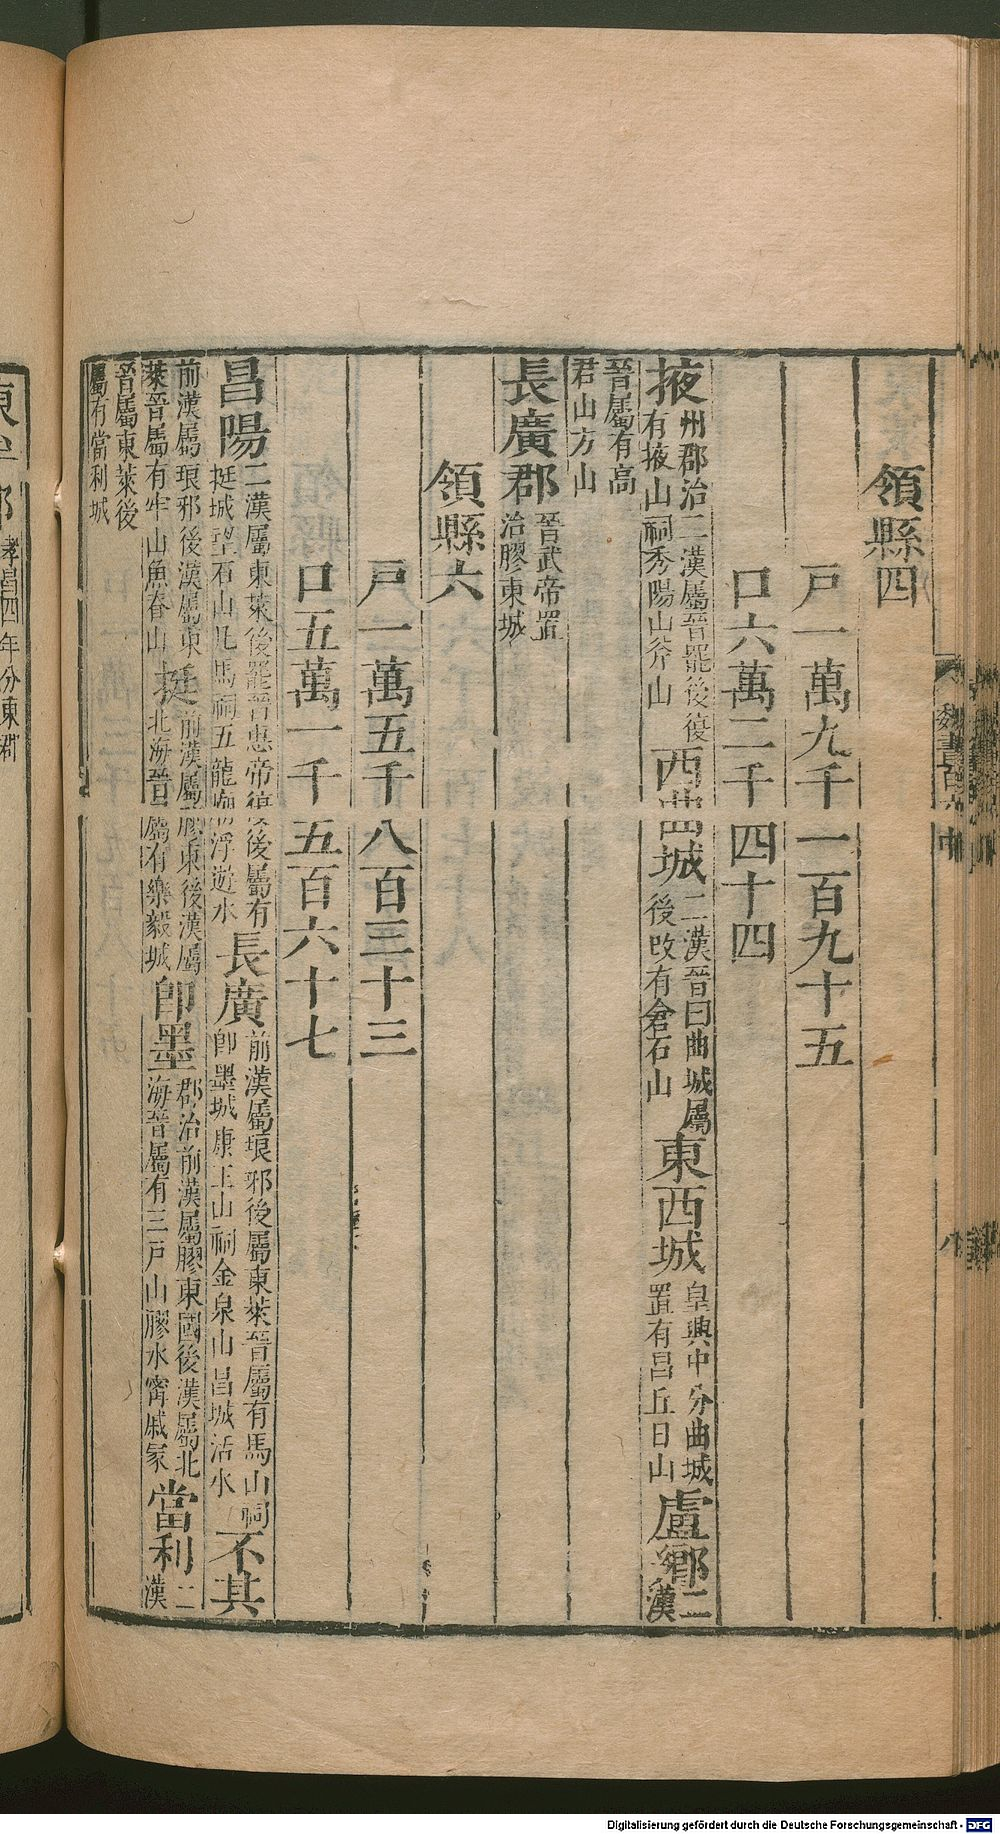 領縣四
戶一萬九千一百九十五
口六萬二千四十四
掖州郡治二漢屬晉罷後復有掖山祠秀陽山斧山西曲城二漢晉曰曲城屬後改有倉石山東西城皇興中分曲城置有昌丘日山盧鄉二漢
晉屬有高君山方山
長廣郡晉武帝置治膠東城
領縣六
戶一萬五千八百三十三
口五萬一千五百六十七
昌陽二漢屬東萊後罷晉惠帝復後屬有挺城望石山凡馬祠五龍廟浮遊水長廣前漢屬琅邪後屬東萊晉屬有馬山祠即墨城康王山祠金泉山昌城沽水不其
前漢屬琅邪後漢屬東萊晉屬有牢山魚脊山挺前漢屬膠東後漢屬北海晉屬有樂毅城即墨郡治前漢屬膠東國後漢屬北海晉屬有三戶山膠水甯戚冢當利二漢
晉屬東萊後屬有當利城
魏書百六中
八
孝昌四年分東
Digitalisierung gefördert durch die Deutsche Forschungsgemeinschaft - DFG